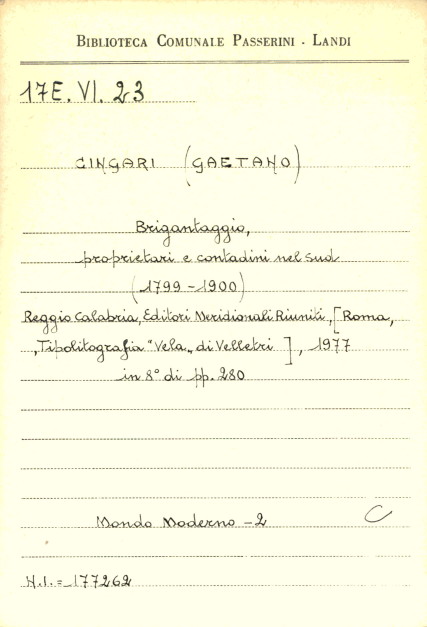 BIBLIOTECA COMUNALE PASSERINI - LANDI
17E. VI. 23
CINGARI (GAETANO)
Brigantaggio,
proprietari e contadini nel sud
(1799 - 1900)
Reggio Calabria, Editori Meridionali Riuniti, [Roma,
Tipolitografia "Vela" di Velletri], 1977
in 8° di pp. 280
Mondo Moderno - 2
C
N.I. = 177262